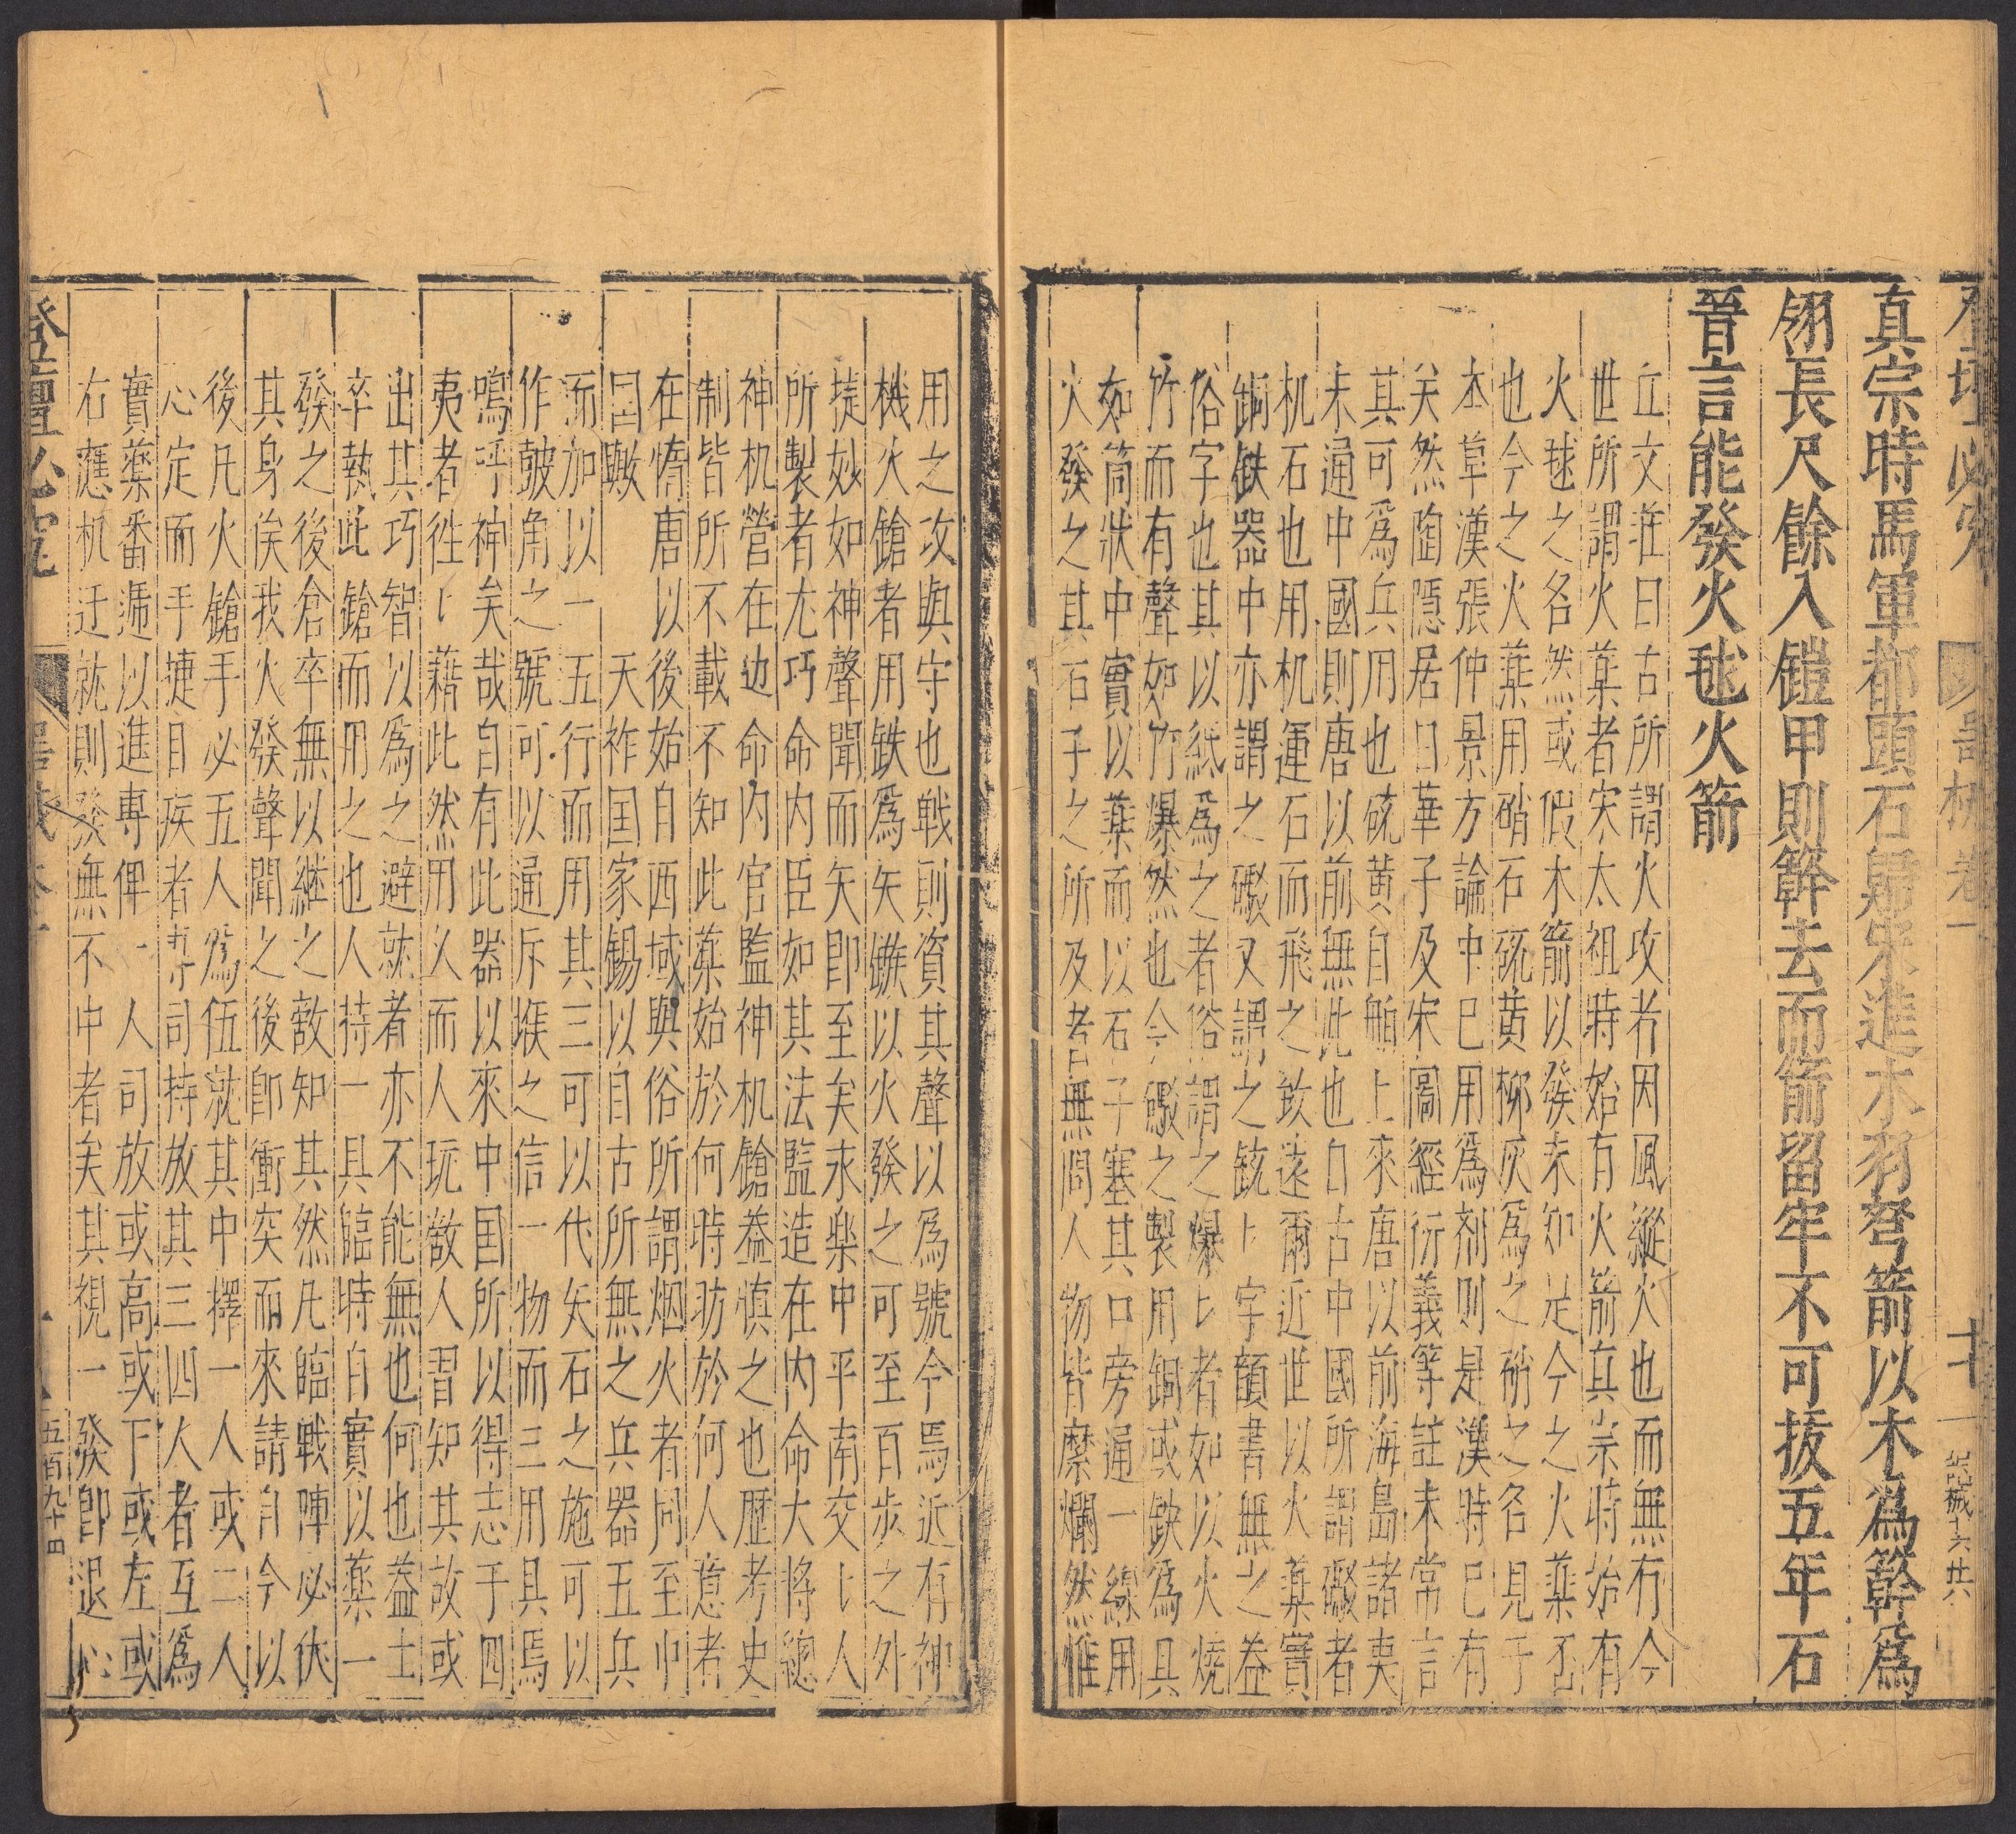 登壇必究
器械 卷一
十七
真宗時馬軍都頭石歸宋進木羽弩箭以木為簳為
翎長尺餘入鎧甲則簳去而箭留牢不可拔五年石
晉言能發火毬火箭
丘文莊曰古所謂火攻者因風縱火也而無有今
世所謂火藥者宋太祖時始有火箭真宗時始有
火毬之名然或假木箭以發未知是今之火藥否
也今之火藥用硝石硫黃柳灰為之硝之名見于
本草漢張仲景方論中已用為劑則是漢時已有
矣然陶隱居日華子及宋圖經衍義等註未常言
其可為兵用也硫黃自舶上來唐以前海島諸夷
未通中國則唐以前無此也自古中國所謂礮者
机石也用机運石而飛之致遠爾近世以火藥實
銅鉄器中亦謂之礮又謂之銃卜字韻書無之益
俗字也其以紙為之者俗謂之爆卜者如以火燒
竹而有聲如竹爆然也今礮之製用銅或鉄為具
如筒狀中實以藥而以石子塞其口旁通一線用
火發之其石子之所及者無問人物皆糜爛然惟
用之攻與守也戦則資其聲以為號令焉近有神
機火鎗者用鉄為矢鏃以火發之可至百步之外
㨗妙如神聲聞而矢即至矣永樂中平南交卜人
所製者尤巧命內臣如其法監造在內命大將總
神机營在边命內官監神机鎗葢慎之也歷考史
制皆所不載不知此藥始於何時昉於何人意者
在惰唐以後始自西域與俗所謂烟火者同至中
国歟 天祚国家錫以自古所無之兵器五兵
而加以一五行而用其三可以代矢石之施可以
作皷角之號可以通斥堠之信一物而三用具焉
嗚呼神矣哉自有此器以來中国所以得志于四
夷者徃卜藉此然用人而人玩敵人習知其故或
出其巧智以為之避就者亦不能無也何也葢士
卒執此鎗而用之也人持一具臨時自實以藥一
發之後倉卒無以継之敵知其然凡臨戦陣必伏
其身俟我火發聲聞之後即衝突而來請自今以
後凡火鎗手必五人為伍就其中擇一人或二人
心定而手捷目疾者專司持放其三四人者互為
實藥番遞以進專俾一人司放或高或下或左或
右應机迁就則發無不中者矣其視一發即退心
登壇必究
五百九十四